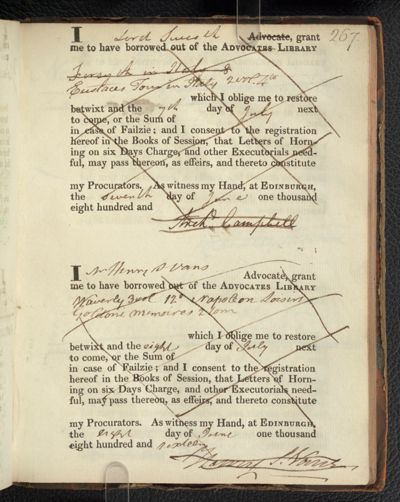 267
I Lord Advocate, grant
me to have borrowed out of the ADVOCATES LIBRARY
Forsyth in Italy
Eustaces Tour in Italy 2 vol.
which I oblige me to restore
betwixt and the 7th day of July next
to come, or the Sum of
in case of Failzie; and I consent to the registration
hereof in the Books of Session, that Letters of Horn-
ing on six Days Charge, and other Executorials need-
ful, may pass thereon, as effeirs, and thereto constitute
my Procurators. As witness my Hand, at EDINBURGH,
the seventh day of June one thousand
eight hundred and
Arch. Campbell
I Henry Advocate, grant
me to have borrowed out of the ADVOCATES LIBRARY
Waverley 3 vol 12o Napoleon
memoires 2 tom
which I oblige me to restore
betwixt and the eight day of July next
to come, or the Sum of
in case of Failzie; and I consent to the registration
hereof in the Books of Session, that Letters of Horn-
ing on six Days Charge, and other Executorials need-
ful, may pass thereon, as effeirs, and thereto constitute
my Procurators. As witness my Hand, at EDINBURGH,
the Eight day of June one thousand
eight hundred and sixteen
Henry